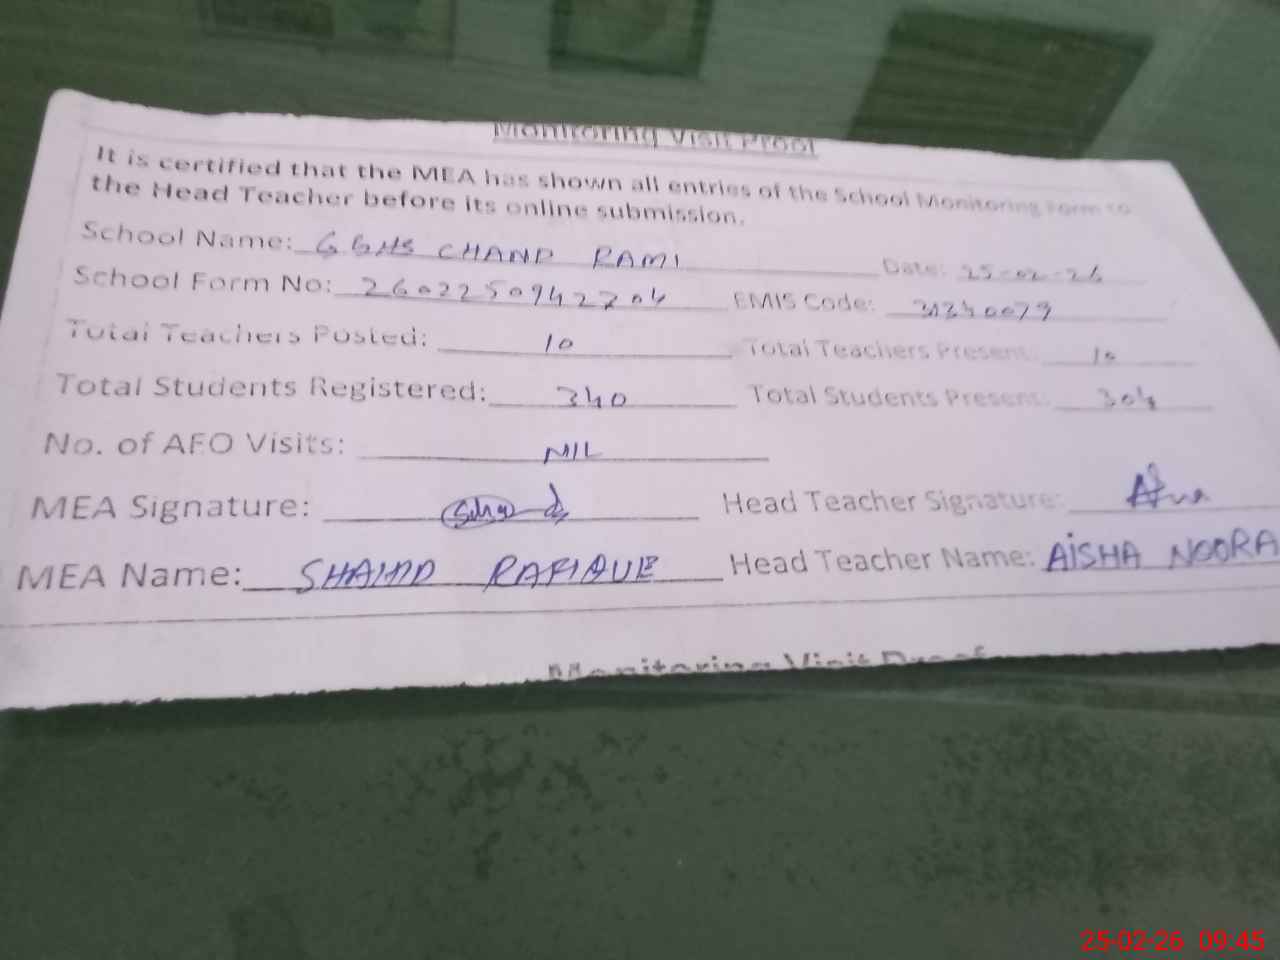 Monitoring Visit Proof
It is certified that the MEA has shown all entries of the School Monitoring Form to
the Head Teacher before its online submission.
School Name: GGHS CHAND RAMI Date: 25-02-26
School Form No: 26022509422704 EMIS Code: 31340079
Total Teachers Posted: 10 Total Teachers Present: 10
Total Students Registered: 340 Total Students Present: 304
No. of AEO Visits: NIL
MEA Signature: Head Teacher Signature:
MEA Name: SHAHID RAFIQUE Head Teacher Name: AISHA NOORA
Monitoring Visit Proof
25-02-26 09:45